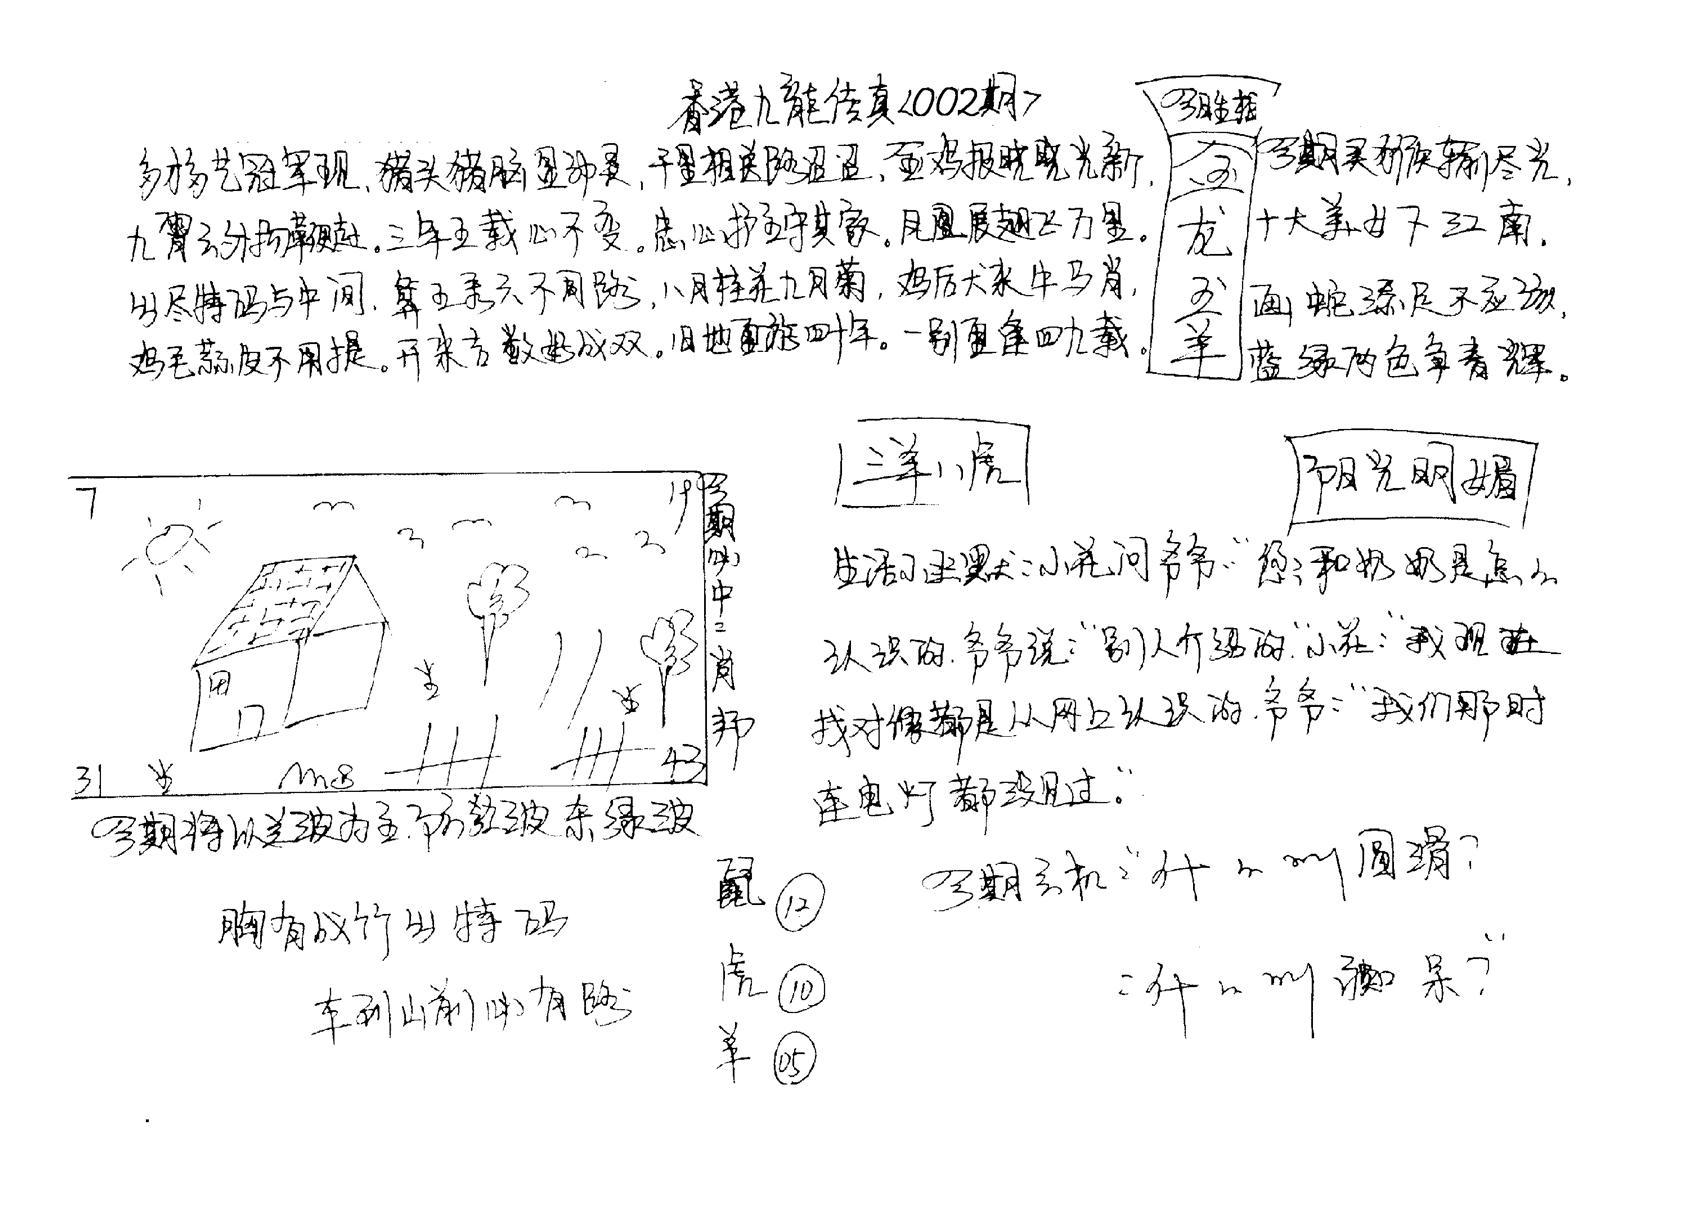 香港九龍传真<002期>
多才多艺冠军现，猪头猪脑显神灵，千里相关路迢迢，金鸡报晓曙光新，
九霄云外扬鞭赶。三年五载心不变。忠心护主守其家。凤凰展翅飞万里。
出尽特码与中间，算五乘六不同路，八月桂花九月菊，鸡后犬来牛马肖，
鸡毛蒜皮不用提。开来吉数好成双。旧地重游四十年。一别重逢四九载。
今期生指
五
龙
五
羊
今期买猴输尽光，
十大美女下江南，
画蛇添足不应该，
蓝绿两色争春辉。
7
19
31
m8
43
今期必中二肖邦
今期将以兰波为主，下防红波来绿波
胸有成竹出特码
车到山前必有路
鼠 12
虎 10
羊 05
三羊八虎
阳光明媚
生活小幽默：小花问爷爷：“您和奶奶是怎么
认识的，爷爷说：“别人介绍的”小花：“我现在
找对像都是从网上认识的，爷爷：“我们那时
连电灯都没见过。”
今期玄机：“什么叫圆滑？
：什么叫痴呆？”